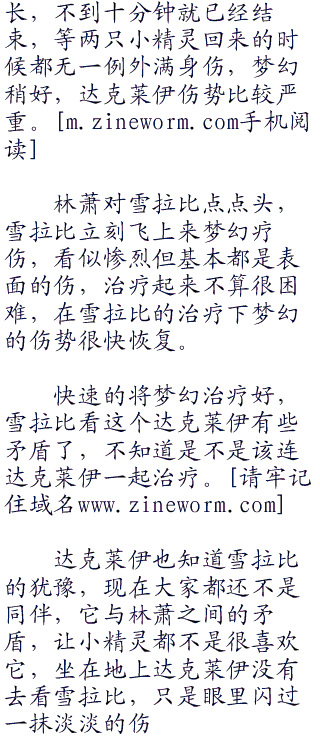 长，不到十分钟就已经结
束，等两只小精灵回来的时
候都无一例外满身伤，梦幻
稍好，达克莱伊伤势比较严
重。[m.zineworm.com手机阅
读]
林萧对雪拉比点点头，
雪拉比立刻飞上来梦幻疗
伤，看似惨烈但基本都是表
面的伤，治疗起来不算很困
难，在雪拉比的治疗下梦幻
的伤势很快恢复。
快速的将梦幻治疗好，
雪拉比看这个达克莱伊有些
矛盾了，不知道是不是该连
达克莱伊一起治疗。[请牢记
住域名www.zineworm.com]
达克莱伊也知道雪拉比
的犹豫，现在大家都还不是
同伴，它与林萧之间的矛
盾，让小精灵都不是很喜欢
它，坐在地上达克莱伊没有
去看雪拉比，只是眼里闪过
一抹淡淡的伤